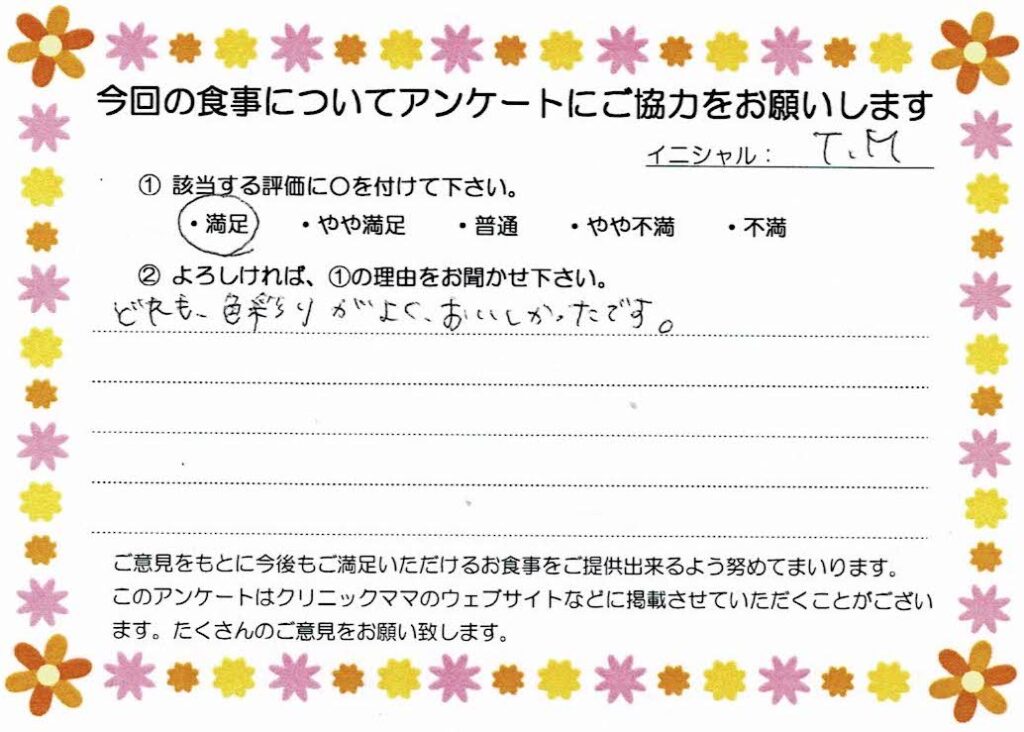 今回の食事についてアンケートにご協力をお願いします
イニシャル： T.M
① 該当する評価に〇を付けて下さい。
・満足 ・やや満足 ・普通 ・やや不満 ・不満
② よろしければ、①の理由をお聞かせ下さい。
どれも、色彩りがよく、おいしかったです。
ご意見をもとに今後もご満足いただけるお食事をご提供出来るよう努めてまいります。
このアンケートはクリニックママのウェブサイトなどに掲載させていただくことがござい
ます。たくさんのご意見をお願い致します。